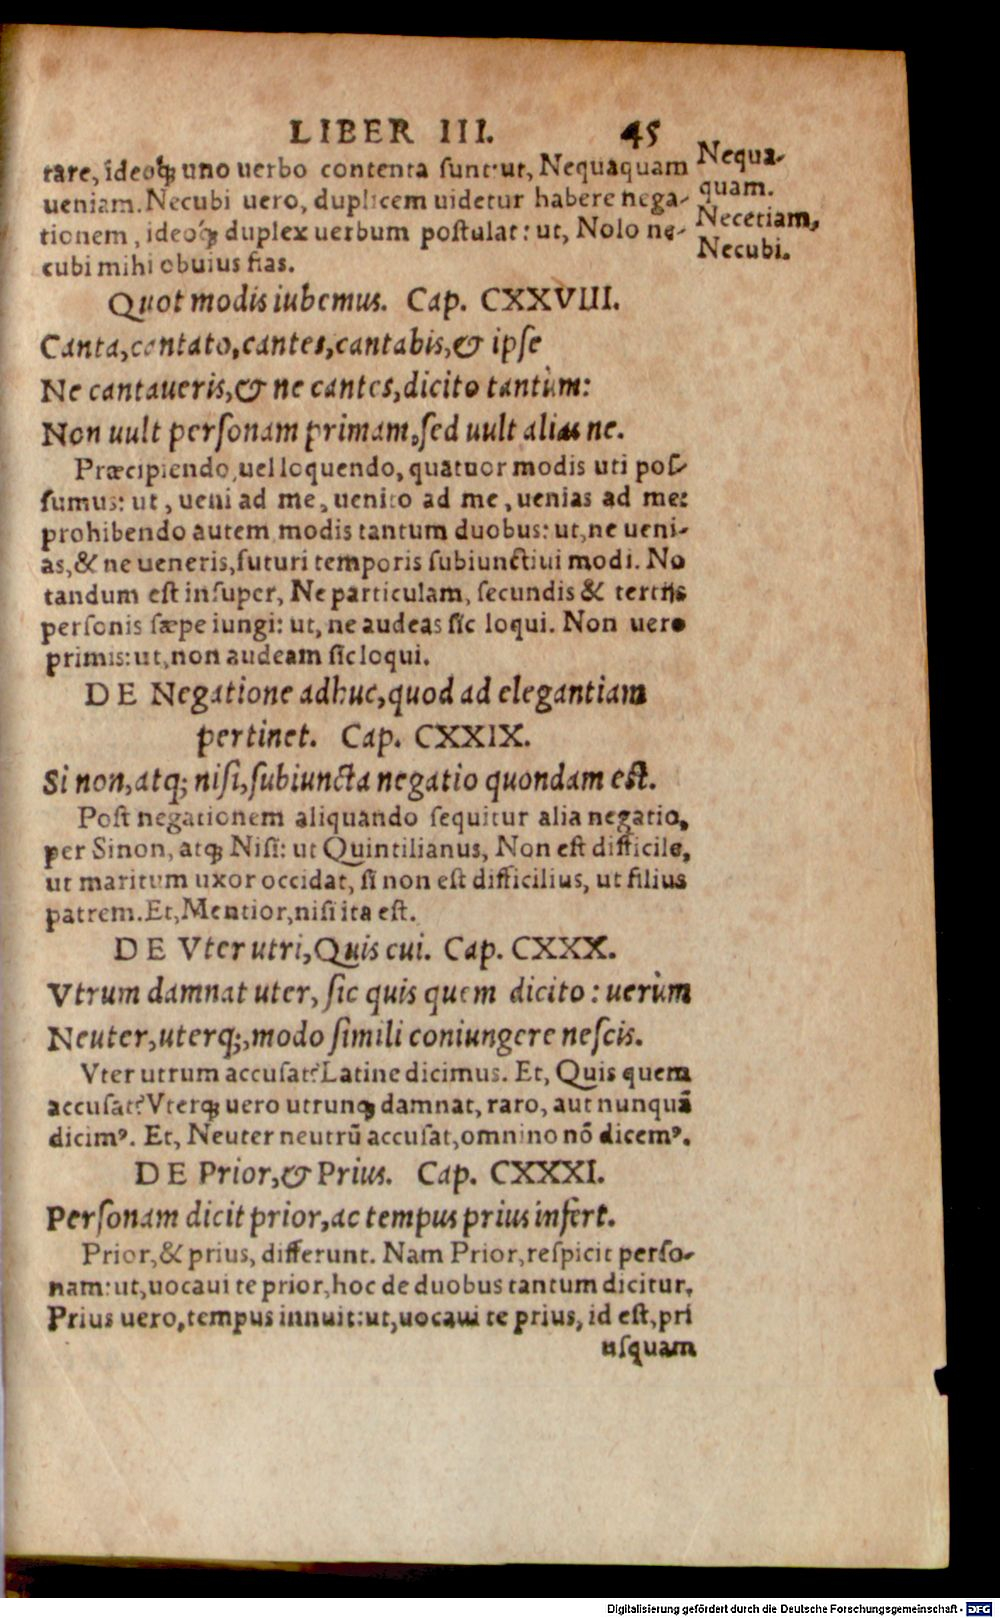 LIBER III. 45
tare, ideoq́ꝫ uno uerbo contenta sunt: ut, Nequaquam
ueniam. Necubi uero, duplicem uidetur habere nega-
tionem, ideoq́ꝫ duplex uerbum postulat: ut, Nolo ne-
cubi mihi obuius fias.
Nequa-
quam.
Necetiam,
Necubi.
Quot modis iubemus. Cap. CXXVIII.
Canta, cantato, cantes, cantabis, & ipse
Ne cantaueris, & ne cantes, dicito tantùm:
Non uult personam primam, sed uult alias ne.
Præcipiendo uel loquendo, quatuor modis uti pos-
sumus: ut, ueni ad me, uenito ad me, uenias ad me:
prohibendo autem modis tantum duobus: ut, ne ueni-
as, & ne ueneris, futuri temporis subiunctiui modi. No
tandum est insuper, Ne particulam, secundis & tertijs
personis sæpe iungi: ut, ne audeas sic loqui. Non uero
primis: ut, non audeam sic loqui.
DE Negatione adhuc, quod ad elegantiam
pertinet. Cap. CXXIX.
Si non, atq; nisi, subiuncta negatio quondam est.
Post negationem aliquando sequitur alia negatio,
per Sinon, atqꝫ Nisi: ut Quintilianus, Non est difficile,
ut maritum uxor occidat, si non est difficilius, ut filius
patrem. Et, Mentior, nisi ita est.
DE Vter utri, Quis cui. Cap. CXXX.
Vtrum damnat uter, sic quis quem dicito: uerùm
Neuter, uterq;, modo simili coniungere nescis.
Vter utrum accusat? Latine dicimus. Et, Quis quem
accusat? Vterqꝫ uero utrunqꝫ damnat, raro, aut nunquã
dicimꝰ. Et, Neuter neutrũ accusat, omnino nõ dicemꝰ.
DE Prior, & Prius. Cap. CXXXI.
Personam dicit prior, ac tempus prius infert.
Prior, & prius, differunt. Nam Prior, respicit perso-
nam: ut, uocaui te prior, hoc de duobus tantum dicitur.
Prius uero, tempus innuit: ut, uocaui te prius, id est, pri
usquam
Digitalisierung gefördert durch die Deutsche Forschungsgemeinschaft - DFG